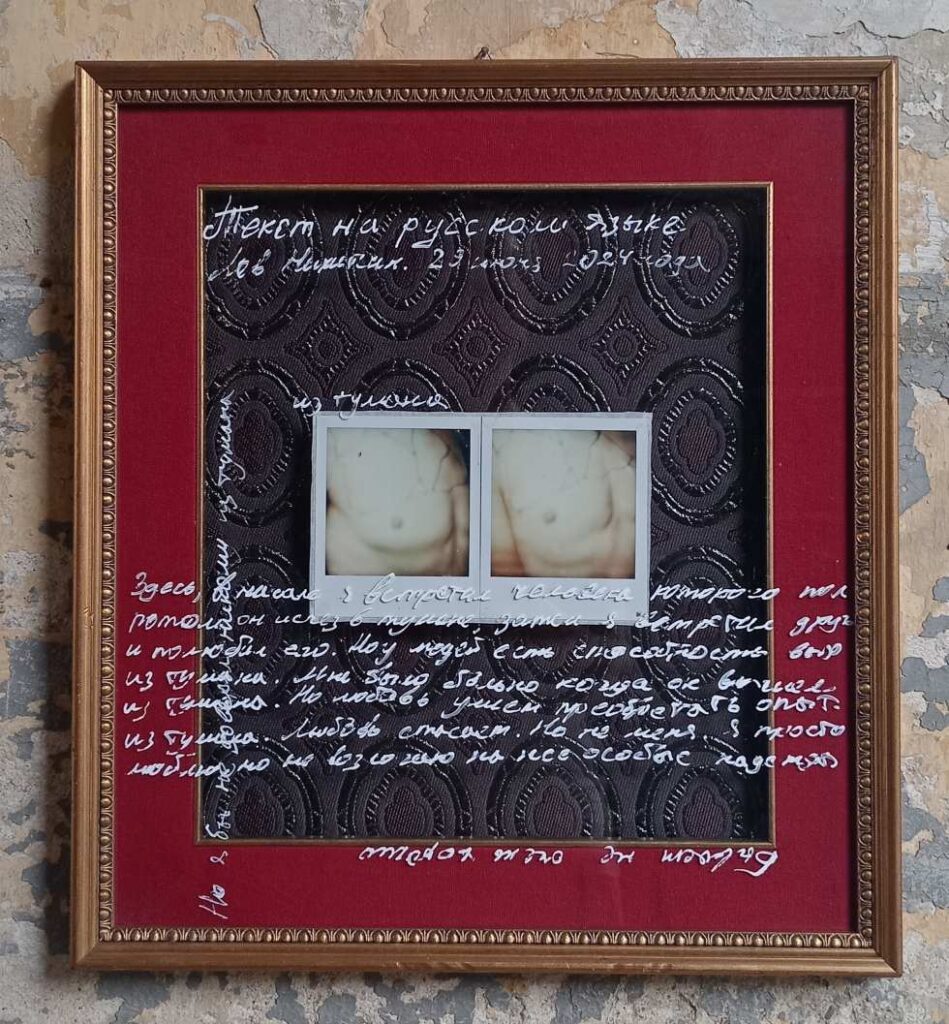 Текст на русском языке
Лев Никитин. 23 июня 2024 года
из тумана
Здесь, сначала я встретил человека которого пол
потом он исчез в тумане, затем я встретил друг
и полюбил его. Но у людей есть способность вых
из тумана. Мне было больно когда он вышел
из тумана. Но любовь умеет преобретать опыт.
из тумана. Любовь спасает. Но не меня. Я просто
люблю но не возлагаю на нее особые надежды
Но я бы не из тумана
Бывает не очень хорошо